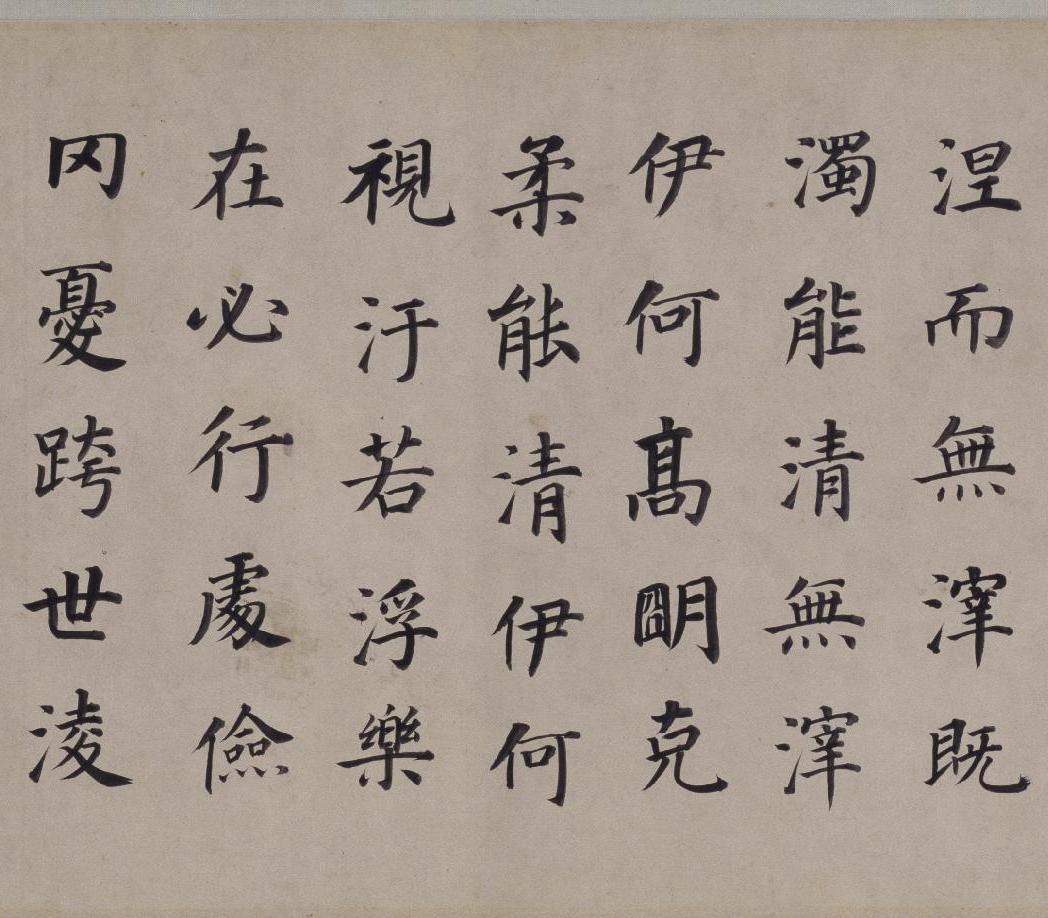 涅而無滓既
濁能清無滓
伊何髙朙克
柔能清伊何
視汙若浮樂
在必行處儉
冈憂跨世淩